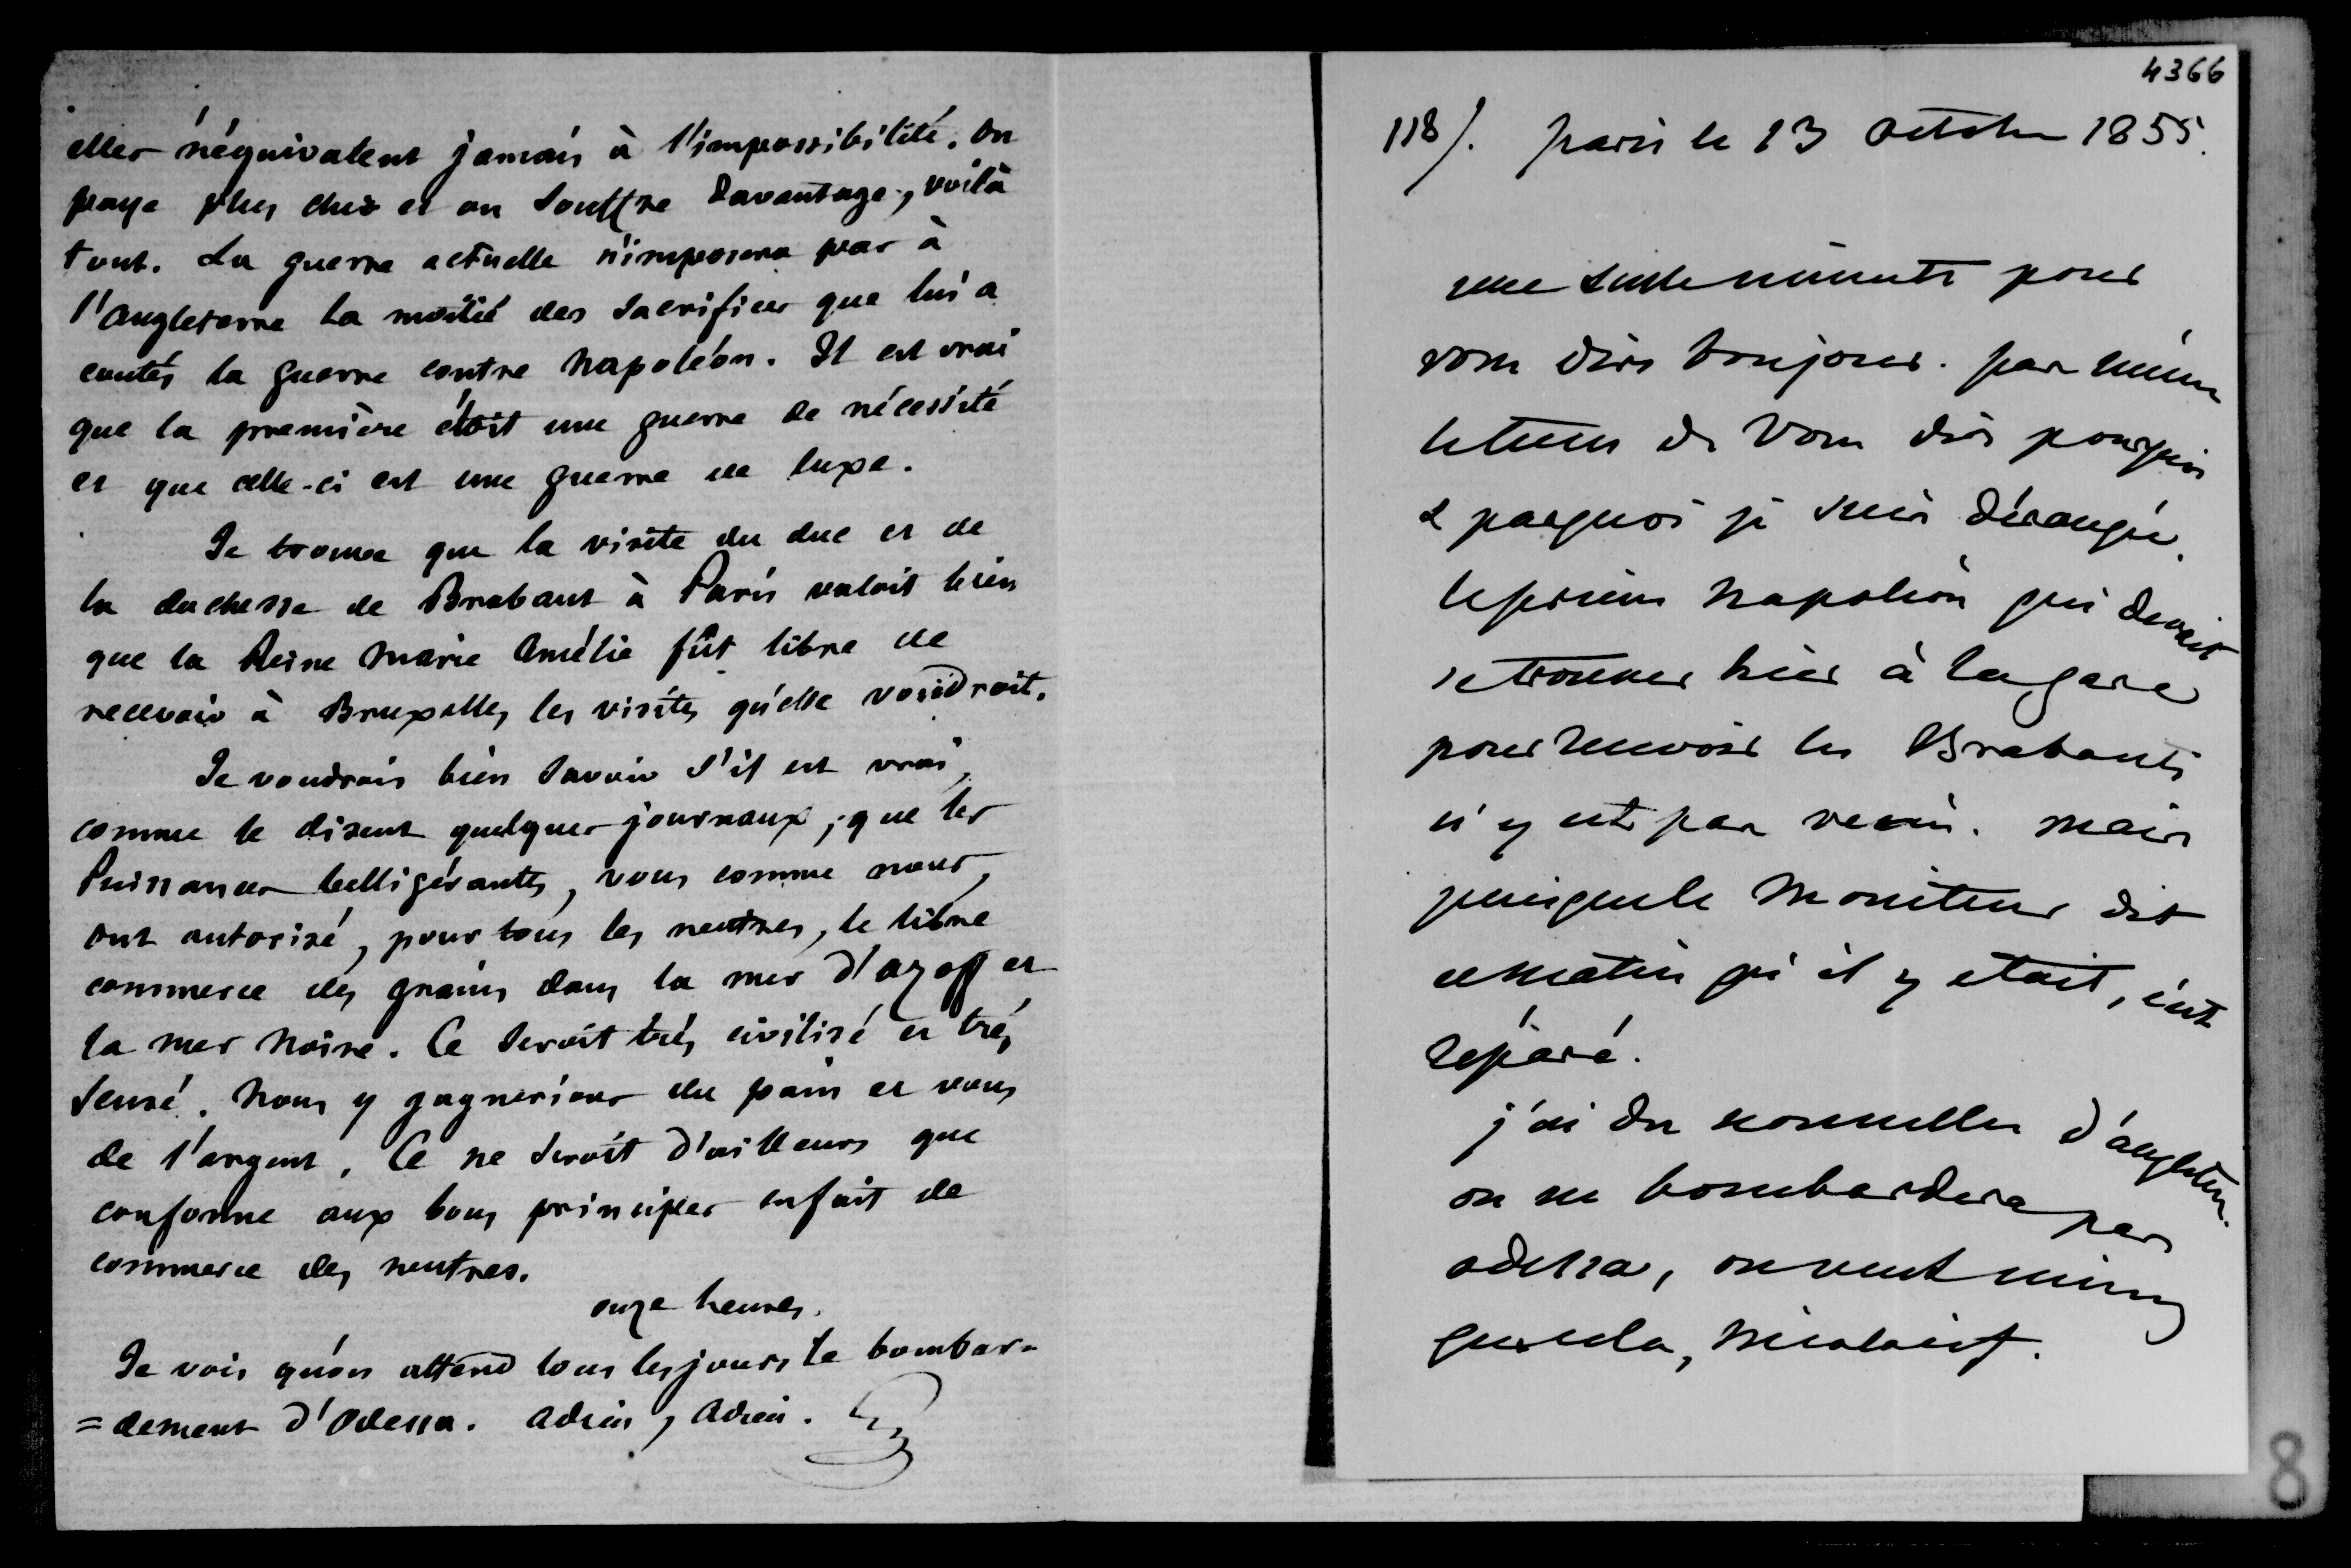 elles n'équivalent jamais à l'impossibilité. On
paye plus cher et on souffre davantage, voilà
tout. La guerre actuelle n'imposera pas à
l'angleterre la moitié des sacrifices que lui a
coutés la guerre contre Napoléon. Il est vrai
que la première étoit une guerre de nécessité
et que celle-ci est une guerre de luxe.
Je trouve que la visite du duc et de
la duchesse de Brabant à Paris valoit bien
que la Reine Marie Amélie fût libre de
recevoir à Bruxelles les visites qu'elle voudroit.
Je voudrais bien savoir s'il est vrai,
comme le disent quelques journaux, que les
Puissances belligérantes, vous comme nous,
ont autorisé, pour tous les neutres, le libre
commerce des grains dans la mer d'azoff et
la mer Noire. Ce seroit très civilisé et très
sensé. Nous y gagnerions du pain et vous
de l'argent. Ce ne seroit d'ailleurs que
conforme aux bons principes en fait de
commerce des neutres.
onze heures.
Je vois qu'on attend tous les jours le bombar-
=dement d'Odessa. Adieu, Adieu.
4366
118/. paris le 13 octobre 1855.
une seule minute pour
vous dire bonjour. pas même
le tems de vous dire pourquoi
& par quoi je suis dérangée.
le prince Napoléon qui devait
se trouver hier à la gare
pour recevoir les Brabants
n'y est pas venu. mais
puisque le Moniteur dit
ce matin qu'il y etait, c'est
réparé.
j'ai des nouvelles d'angleterre.
on ne bombardera pas
odessa, on veut mieux
que cela, Nicolaief.
8